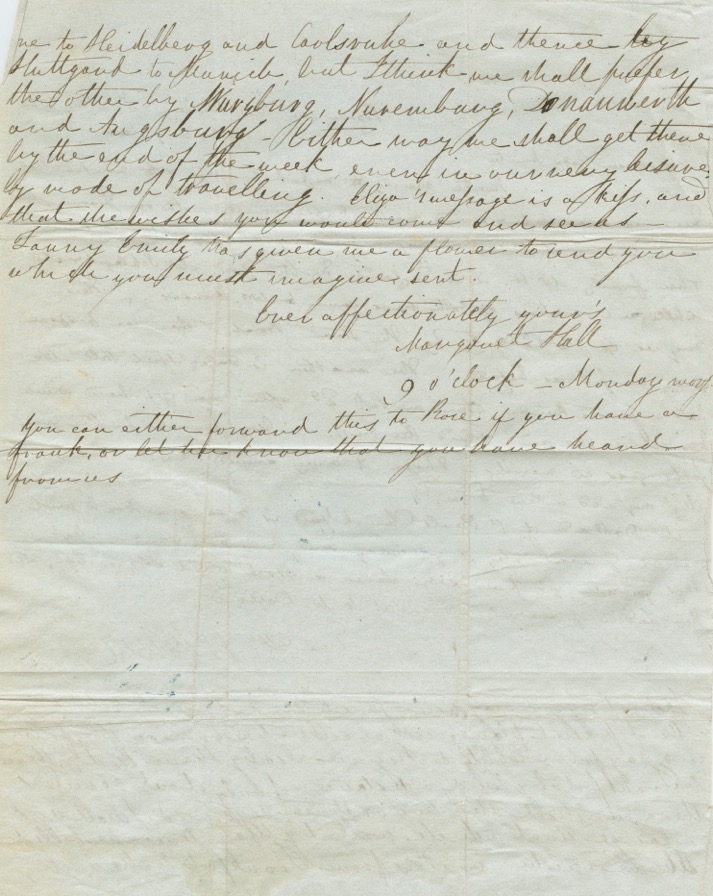 me to Heidelberg and Carlsruhe and thence by
Stuttgard to Munich, but I think we shall prefer
the other by Wurzburg, Nuremburg, Donauwerth
and Augsburg - Either way we shall get there
by the end of the week, even in our very leisure-
ly mode of travelling. Eliza's message is a kiss, and
that she wishes you would come and see us -
Fanny Emily has given me a flower to send you
which you must imagine sent.
Ever affectionately your's
Margaret Hall
9 o'clock - Monday morg
You can either forward this to Rose if you have a
frank, or let her know that you have heard
from us